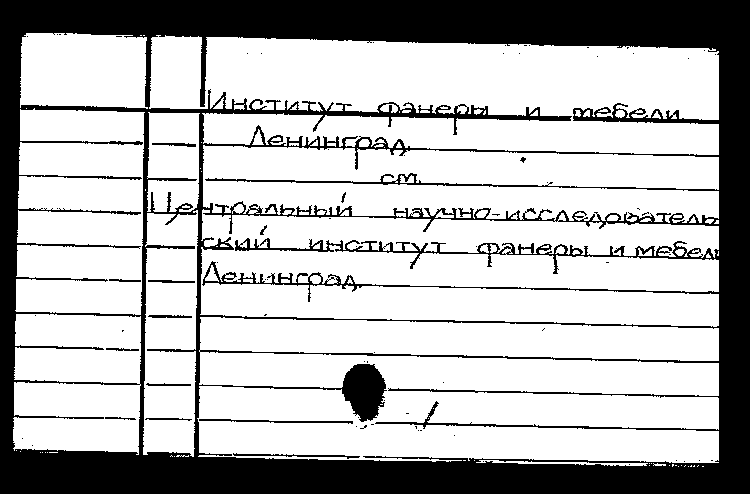 Институт фанеры и мебели
Ленинград.
см.
Центральный научно-исследователь
ский институт фанеры и мебели
Ленинград.